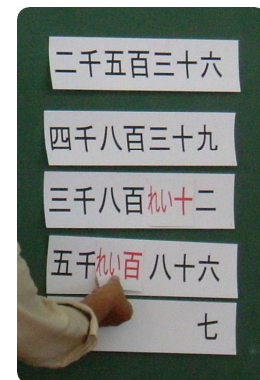 二千五百三十六
四千八百三十九
三千八百れい十二
五千れい百八十六
七